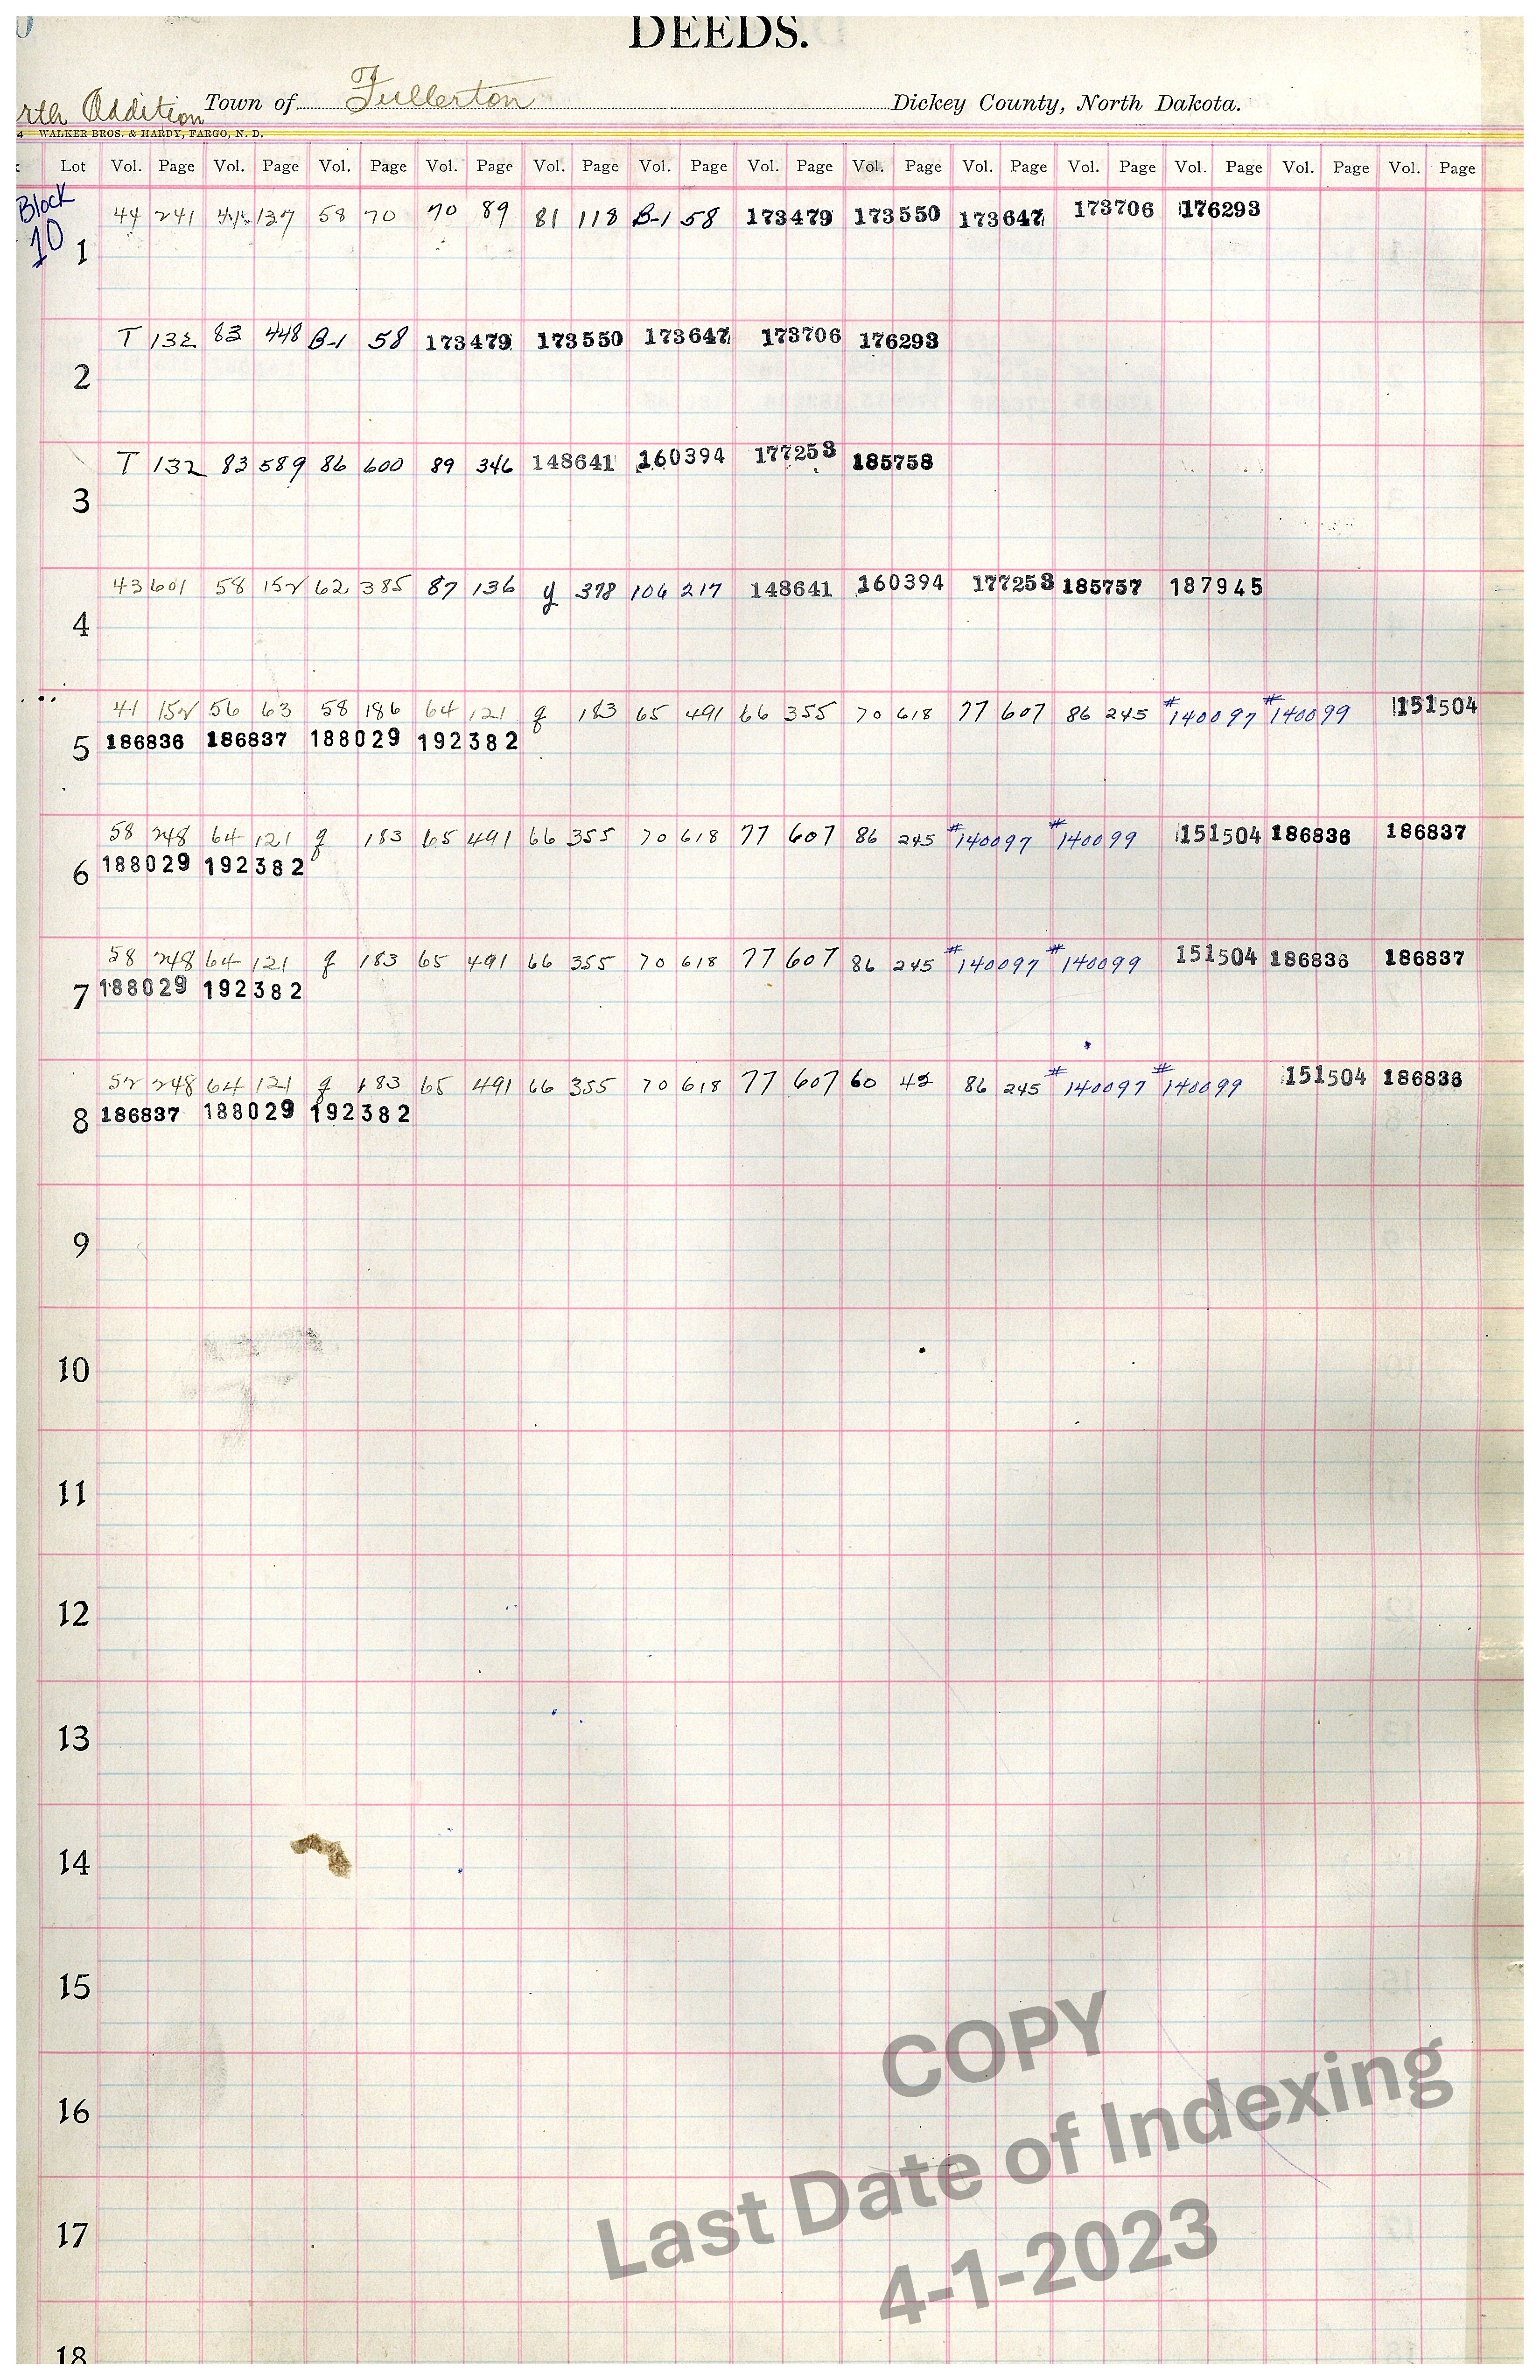 DEEDS.
rth Addition Town of Fullerton Dickey County, North Dakota.
4 WALKER BROS. & HARDY, FARGO, N. D.
Lot Vol. Page Vol. Page Vol. Page Vol. Page Vol. Page Vol. Page Vol. Page Vol. Page Vol. Page Vol. Page Vol. Page Vol. Page Vol. Page
Block
10
44 241 137 58 70 70 89 81 118 B-1 58 173479 173550 173647 173706 176293
1
T 132 83 448 B-1 58 173479 173550 173647 173706 176293
2
T 132 83 589 86 600 89 346 148641 160394 177253 185758
3
43 601 58 152 62 385 87 136 y 378 106 217 148641 160394 177253 185757 187945
4
41 152 56 63 58 186 64 121 g 183 65 491 66 355 70 618 77 607 86 245 #140097 #140099 151504
5 186836 186837 188029 192382
58 248 64 121 g 183 65 491 66 355 70 618 77 607 86 245 #140097 #140099 151504 186836 186837
6 188029 192382
58 248 64 121 g 183 65 491 66 355 70 618 77 607 86 245 #140097 #140099 151504 186836 186837
7 188029 192382
52 248 64 121 g 183 65 491 66 355 70 618 77 607 60 42 86 245 #140097 #140099 151504 186836
8 186837 188029 192382
9
10
11
12
13
14
15
16
17
18
COPY
Last Date of Indexing
4-1-2023